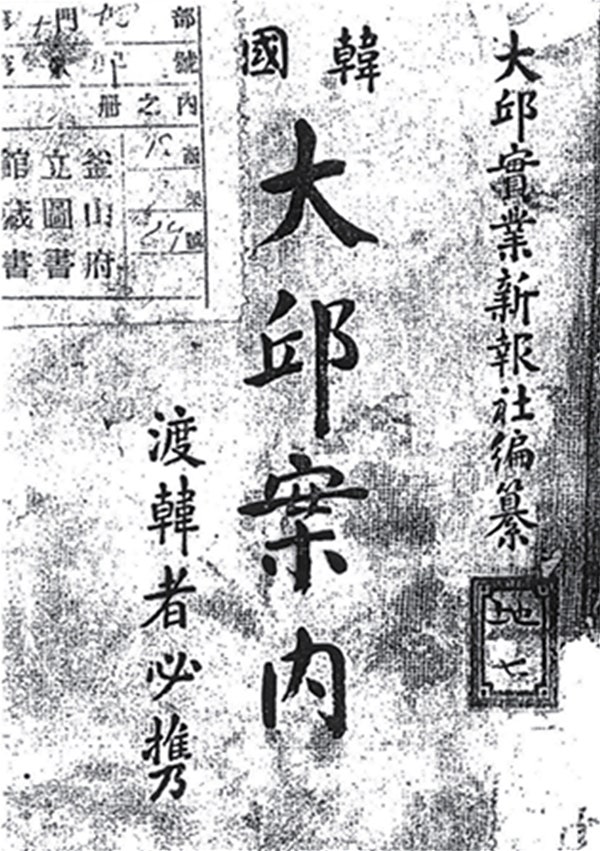 大邱實業新報社編纂
韓國
大邱案内
渡韓者必携
地七
部門
號
内之册
釜山府
立圖書
館藏書